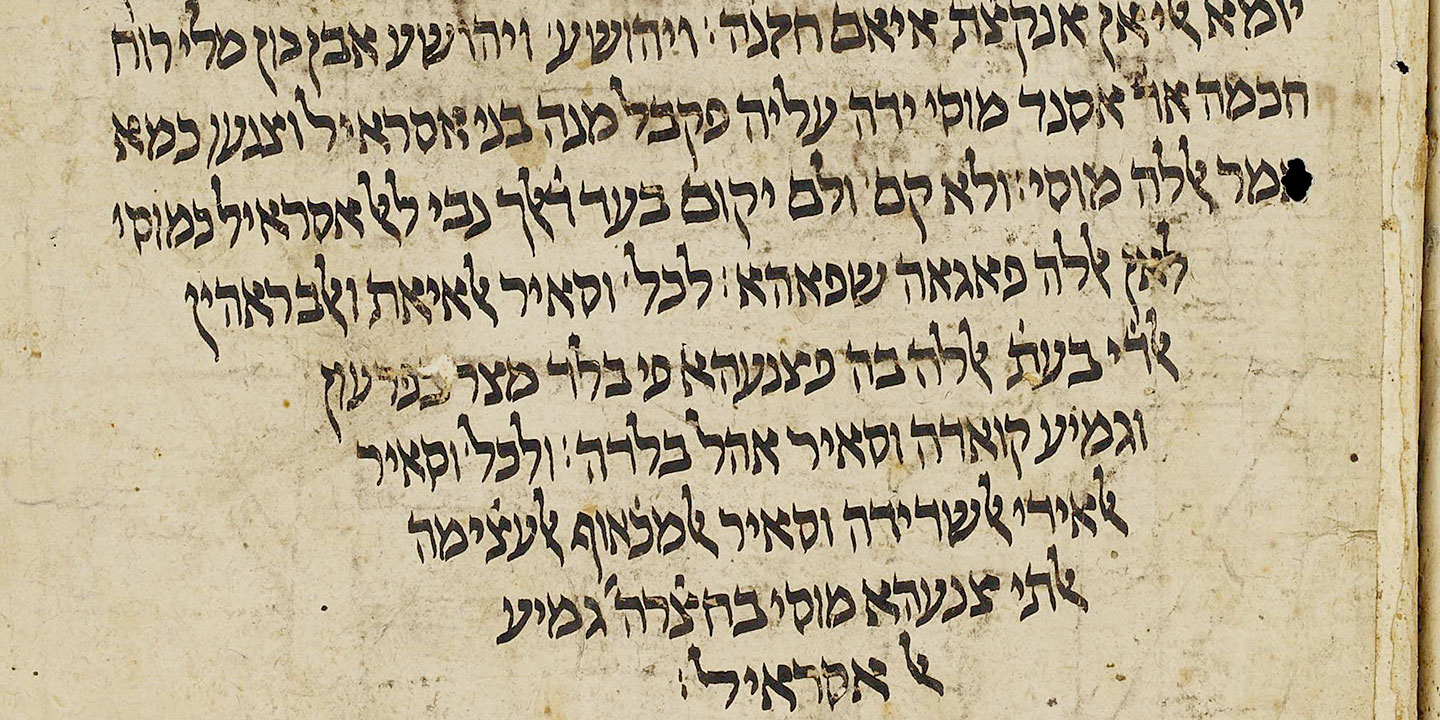 יומא אלי אן אנקצ̇ת איאם חזנה: ויהושע ויהושע אבן נון מלי רוח̇
חכמה אד̇ אסנד מוסי ידה עליה פקבל מנה בני אסראיל וצנעו כמא
אמר אללה מוסי: ולא קם ולם יקום בעד ד̇אלך נבי לאל אסראיל כמוסי
אלד̇י אללה פאגאה שפאהא: לכל וסאיר אלאיאת ואלבראהין
אלד̇י בעת̇ אללה בה פצנעהא פי בלד מצר בפרעון
וגמיע קואדה וסאיר אהל בלדה: ולכל וסאיר
אלאידי אלשדידה וסאיר אלמכ̇אוף אלעצ̇ימה
אלתי צנעהא מוסי בחצ̇רה̈ גמיע
אל אסראיל: